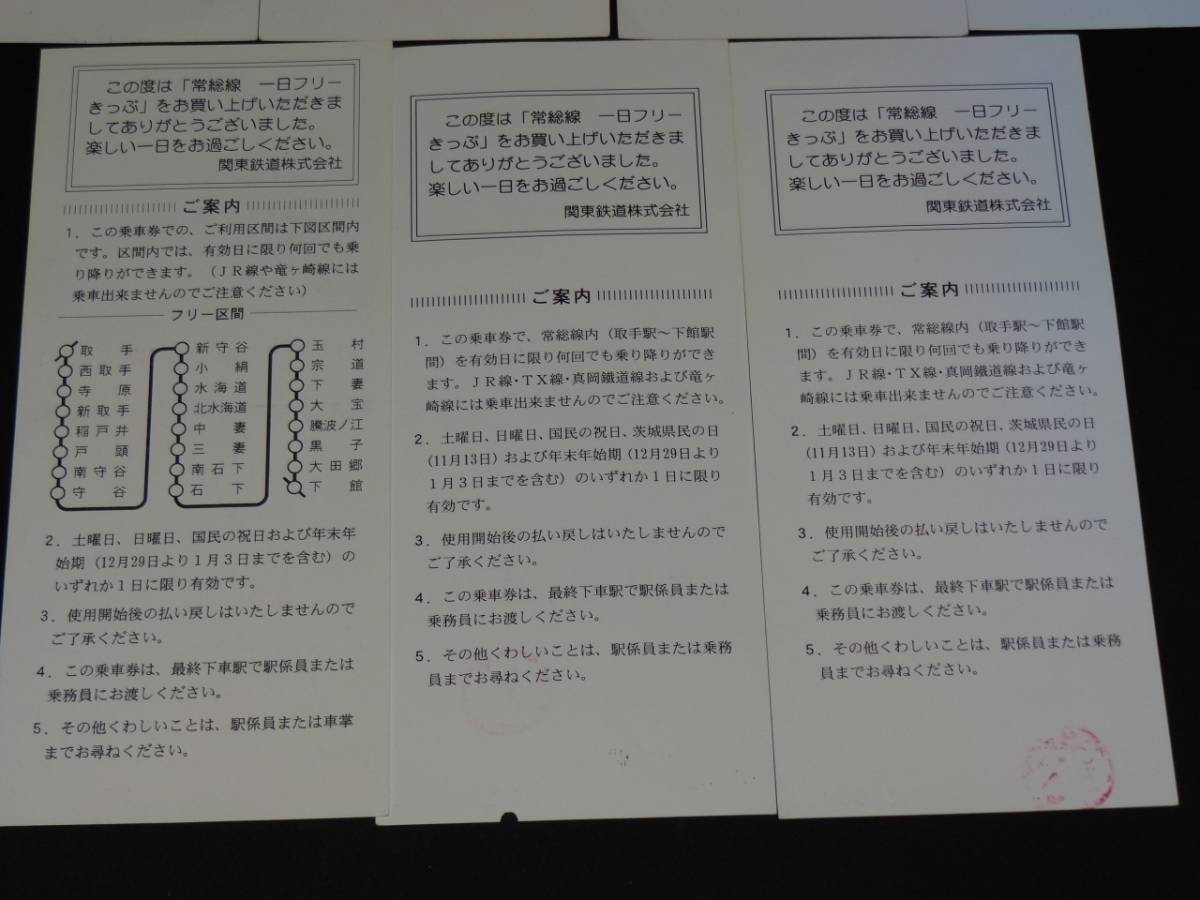 この度は「常総線 一日フリー
きっぷ」をお買い上げいただきま
してありがとうございました。
楽しい一日をお過ごしください。
関東鉄道株式会社
ご案内
1．この乗車券での、ご利用区間は下図区間内
です。区間内では、有効日に限り何回でも乗
り降りができます。（ＪＲ線や竜ヶ崎線には
乗車出来ませんのでご注意ください）
フリー区間
取手
西取手
寺原
新取手
稲戸井
戸頭
南守谷
守谷
新守谷
小絹
水海道
北水海道
中妻
三妻
南石下
石下
玉村
宗道
下妻
大宝
騰波ノ江
黒子
大田郷
下館
2．土曜日、日曜日、国民の祝日および年末年
始期（12月29日より１月３日までを含む）の
いずれか１日に限り有効です。
3．使用開始後の払い戻しはいたしませんので
ご了承ください。
4．この乗車券は、最終下車駅で駅係員または
乗務員にお渡しください。
5．その他くわしいことは、駅係員または車掌
までお尋ねください。
この度は「常総線 一日フリー
きっぷ」をお買い上げいただきま
してありがとうございました。
楽しい一日をお過ごしください。
関東鉄道株式会社
ご案内
1．この乗車券で、常総線内（取手駅～下館駅
間）を有効日に限り何回でも乗り降りができ
ます。ＪＲ線・ＴＸ線・真岡鐵道線および竜ヶ
崎線には乗車出来ませんのでご注意ください。
2．土曜日、日曜日、国民の祝日、茨城県民の日
（11月13日）および年末年始期（12月29日より
１月３日までを含む）のいずれか１日に限り
有効です。
3．使用開始後の払い戻しはいたしませんので
ご了承ください。
4．この乗車券は、最終下車駅で駅係員または
乗務員にお渡しください。
5．その他くわしいことは、駅係員または乗務
員までお尋ねください。
この度は「常総線 一日フリー
きっぷ」をお買い上げいただきま
してありがとうございました。
楽しい一日をお過ごしください。
関東鉄道株式会社
ご案内
1．この乗車券で、常総線内（取手駅～下館駅
間）を有効日に限り何回でも乗り降りができ
ます。ＪＲ線・ＴＸ線・真岡鐵道線および竜ヶ
崎線には乗車出来ませんのでご注意ください。
2．土曜日、日曜日、国民の祝日、茨城県民の日
（11月13日）および年末年始期（12月29日より
１月３日までを含む）のいずれか１日に限り
有効です。
3．使用開始後の払い戻しはいたしませんので
ご了承ください。
4．この乗車券は、最終下車駅で駅係員または
乗務員にお渡しください。
5．その他くわしいことは、駅係員または乗務
員までお尋ねください。